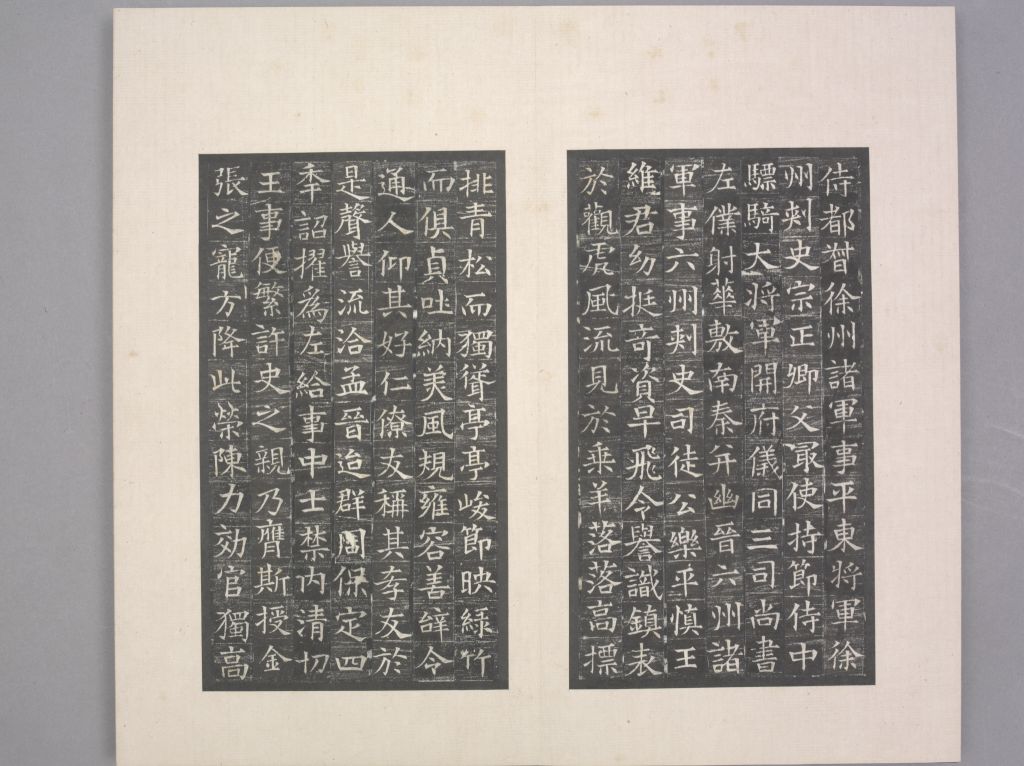 侍都督徐州諸軍事平東將軍徐
州刺史宗正卿父最使持節侍中
驃騎大將軍開府儀同三司尚書
左僕射華敷南秦并幽晉六州諸
軍事六州刺史司徒公樂平慎王
維君幼挺奇資早飛令譽識鎮表
於觀虎風流見於乘羊落落高摽
排青松而獨聳亭亭峻節映綠竹
而俱貞吐納美風規雍容善辭令
通人仰其好仁僚友稱其孝友於
是聲譽流洽孟晉迨群周保定四
奉詔擢為左給事中士禁內清切
王事便繁許史之親乃膺斯授金
張之寵方降此榮陳力効官獨高